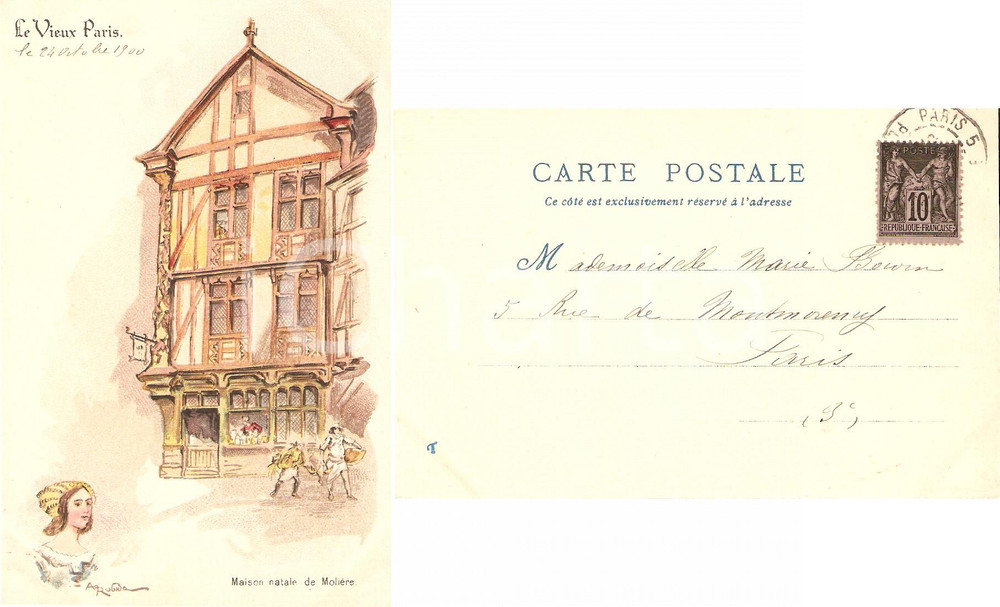 Le Vieux Paris.
le 24 Octobre 1900
A. Robida
Maison natale de Molière.
CARTE POSTALE
Ce côté est exclusivement réservé à l'adresse
Mademoiselle Marie
5 Rue de Montmorency
Paris
(3e)
PARIS 5
POSTES
10
REPUBLIQUE FRANÇAISE
T